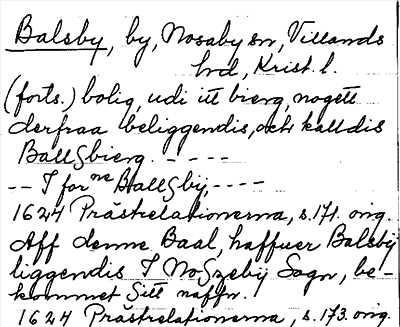 Balsby, by, Nosaby sn, Villands
hrd, Krist. l.
(forts.) bolig, udi itt bierg, nogett
derfraa beliggendis, och kalldis
Ballßbierg. - - - -
-- I forne Ballßbÿ, - - - -
1624 Prästrelationerna, s. 171. orig.
Aff denne Baal, haffuer Balsbÿ
liggendis I Noßzebÿ Sogn, be-
kommet sitt naffn.
1624 Prästrelationerna, s. 173. orig.